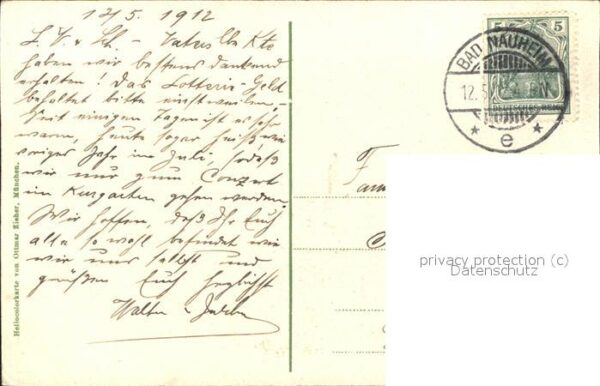 12/5. 1912
L. V. & - Vaters lb. Kte
haben wir bestens dankend
erhalten! Das Lotterie-Geld
behaltet bitte einstweilen,
Seit einigen Tagen ist es sehr
warm, heute sogar heiß wie
voriges Jahr im Juli, sodaß
wir nur zum Conzert
im Kurgarten gehen werden.
Wir hoffen, daß Ihr Euch
alle so wohl befindet wie
wir uns selbst und
grüßen Euch herzlichst
Walter
Heliocolorkarte von Ottmar Zieher, München.
5 5
DEUTSCHES REICH
BAD NAUHEIM
12.5.
* e *
Fam
privacy protection (c)
Datenschutz